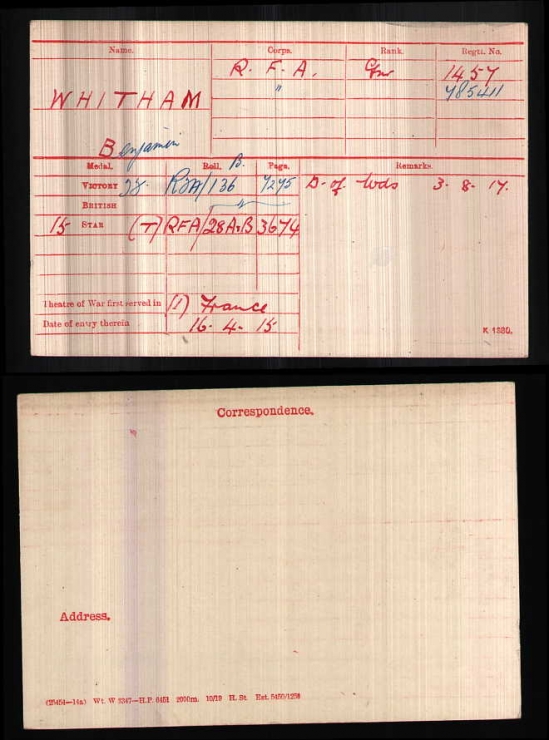 Name. Corps. Rank. Regtl. No.
R. F. A. Gnr 1457
WHITHAM " 785411
Benjamin
Medal. Roll. Page. Remarks.
VICTORY RFA/136 B. 7295 D. of Wds 3. 8. 17.
BRITISH "
15 STAR (T) RFA/28A.B 3674
Theatre of War first served in (1) France
Date of entry therein 16. 4. 15
K 1380.
Correspondence.
Address.
(25454—14a) Wt. W 3347—H.P. 8451 2000m. 10/19 H. St.